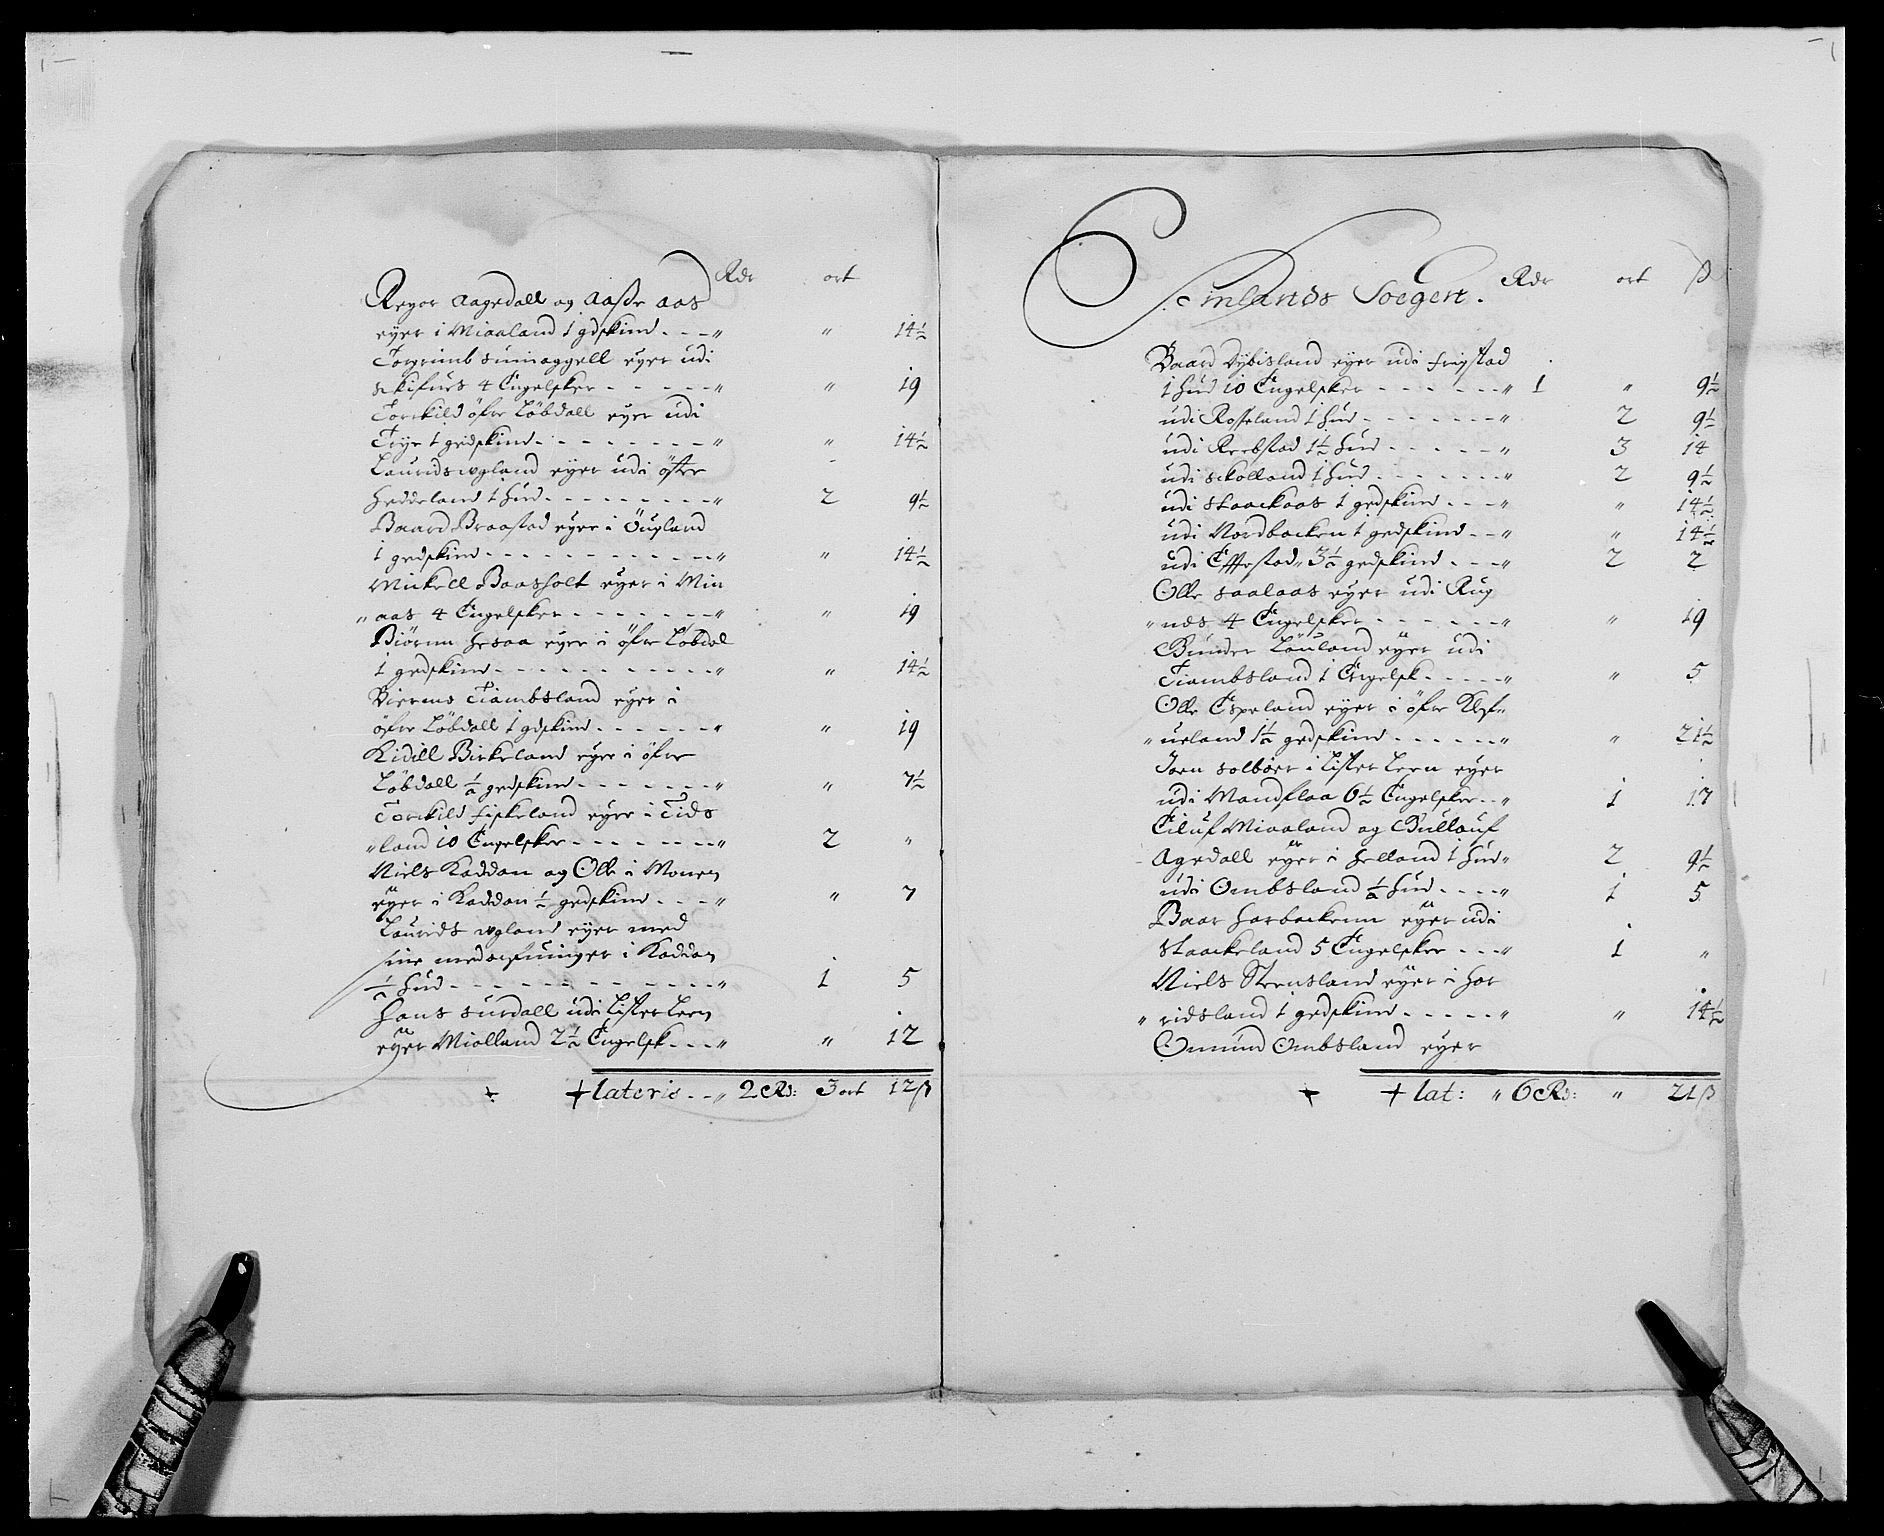 Rdr ort
Reyer Aagedall og Aasße Aas
eyer i Miaaland 1 gedskind - - - " " 14½
Torgrimb Sumaggell eyer udi
Skifues 4 Engelsker - - - - - " " 19
Torkild öfre Löbdall eyer udi
Trye 1 geidskind - - - - - - - " " 14½
Laurids Ugland eyer udi öfre
Heddeland 1 hud - - - - - - - - " 2 9½
Baard Braastad eyer i Öugland
1 gedskind - - - - - - - - - - " " 14½
Mickell Baasholt eyer i Min
" aas 4 Engelsker - - - - - - - " " 19
Biörnn Hesaa eyer i öfre Löbdal
1 gedskind - - - - - - - - - - " " 14½
Tiambsland eyer i
öfre Löbdall 1 gdskind - - - - - - " " 19
Kidill Birkeland eyer i öfre
Löbdall ½ gedskind - - - - - - - " " 7½
Torkild Fiskeland eyer i Tids
" land 10 Engelsker - - - - - - - " 2 "
Niels Kaddan og Olle i Monen
eÿer i Kaddan ½ gedskind - - - " " 7
Laurids Ugland eyer med
sine i Kaddan
½ hud - - - - - - - - - - - - " 1 5
Hans Surdall udi Lister Leen
eÿer Miolland 2½ Engelsk - - - " " 12
+ lateris - - " 2 Rd: 3 ort 12 ß
Finlands Soegen. Rdr ort ß
Baard Dybisland eyer udi Frigstad
1 hud 10 Engelsker - - - - - - " 1 " 9½
udi Rosseland 1 hud - - - - - - - " 2 9½
udi Reebstad 1½ hud - - - - - " 3 14
udi Skolland 1 hud - - - - - - - " 2 9½
udi Staackaas 1 gedskind - - - " " 14½
udi Nordbacken 1 gedskind - - " " 14½
udi Effestad 3½ gedskind - - - " 2 2
Olle Saalaas eyer udi Rug
" nes 4 Engelsker - - - - - - " " 19
Gunder Löuland eÿer udi
Tiambsland 1 Engelsk - - - - - " " 5
Olle Espeland eyer i öfre Klef
" ueland 1½ gedskind - - - - - - " " 21½
Joen Solböer i Lister Leen eyer
udi Mandflaa 6½ Engelsker - - " 1 17
Eiluf Miaaland og Gullauf
Agedall eÿer i Helland 1 hud " 2 9½
udi Ombsland ½ hud - - - - " 1 5
Baar Harbackenn eÿer udi
Staackeland 5 Engelsker - - - " 1 "
Niels Steensland eyer i Har
" ridsland 1 gedskind - - - - - " " 14½
Omund Ombsland eyer
+ lat: " 6 Rd: " 21 ß